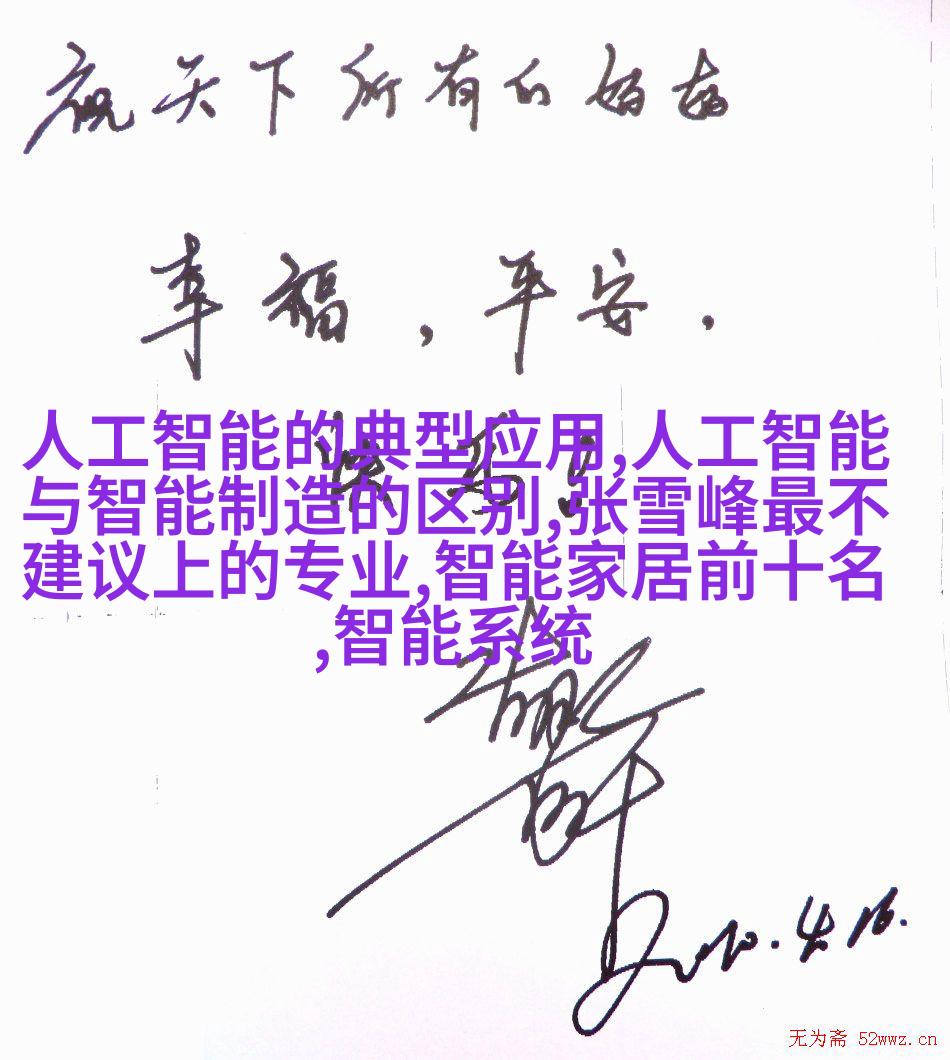 祝天下所有的妈妈
幸福，平安，
人工智能的典型应用,人工智能
与智能制造的区别,张雪峰最不
建议上的专业,智能家居前十名
,智能系统
2010.4.16.
无为斋 52wwz.cn